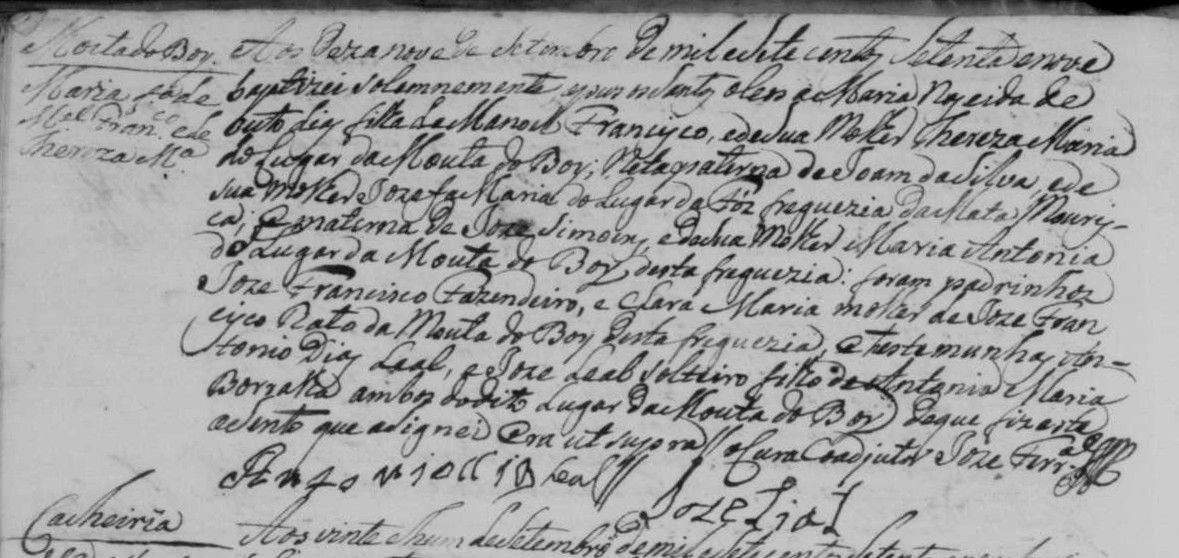 Mouta do Boy.
Maria fa de
Mel Franco e de
Thereza Ma
Aos dezanove de Setembro de mil e Sete centos Setenta e nove
baptizei solemnemente e puz os Santos oleos a Maria Nascida de
outo dias filha de Manoel Francisco, e de sua Molher Thereza Maria
do Lugar da Mouta do Boy; Neta paterna de Joam da Silva, e de
sua Molher Jozefa Maria do Lugar da Foz freguezia da Mata Mouris-
ca; e materna de Joze Simoens, e de sua Molher Maria Antonia
do Lugar da Mouta do Boy desta freguezia: foram padrinhos
Joze Francisco Fazendeiro, e Clara Maria molher de Joze Fran
cisco Rato da Mouta do Boy desta freguezia, e testemunhas An-
tonio Dias Leal, e Joze Leal Solteiro filho de Antonia Maria
Borralha ambos do dito Lugar da Mouta do Boy de que fiz este
asento que asignei Era ut supra // o Cura Coadjutor Joze Ferra
Leal Joze Lial
Cacheiria
Aos vinte e hum de Setembro de mil e Sete centos Setenta